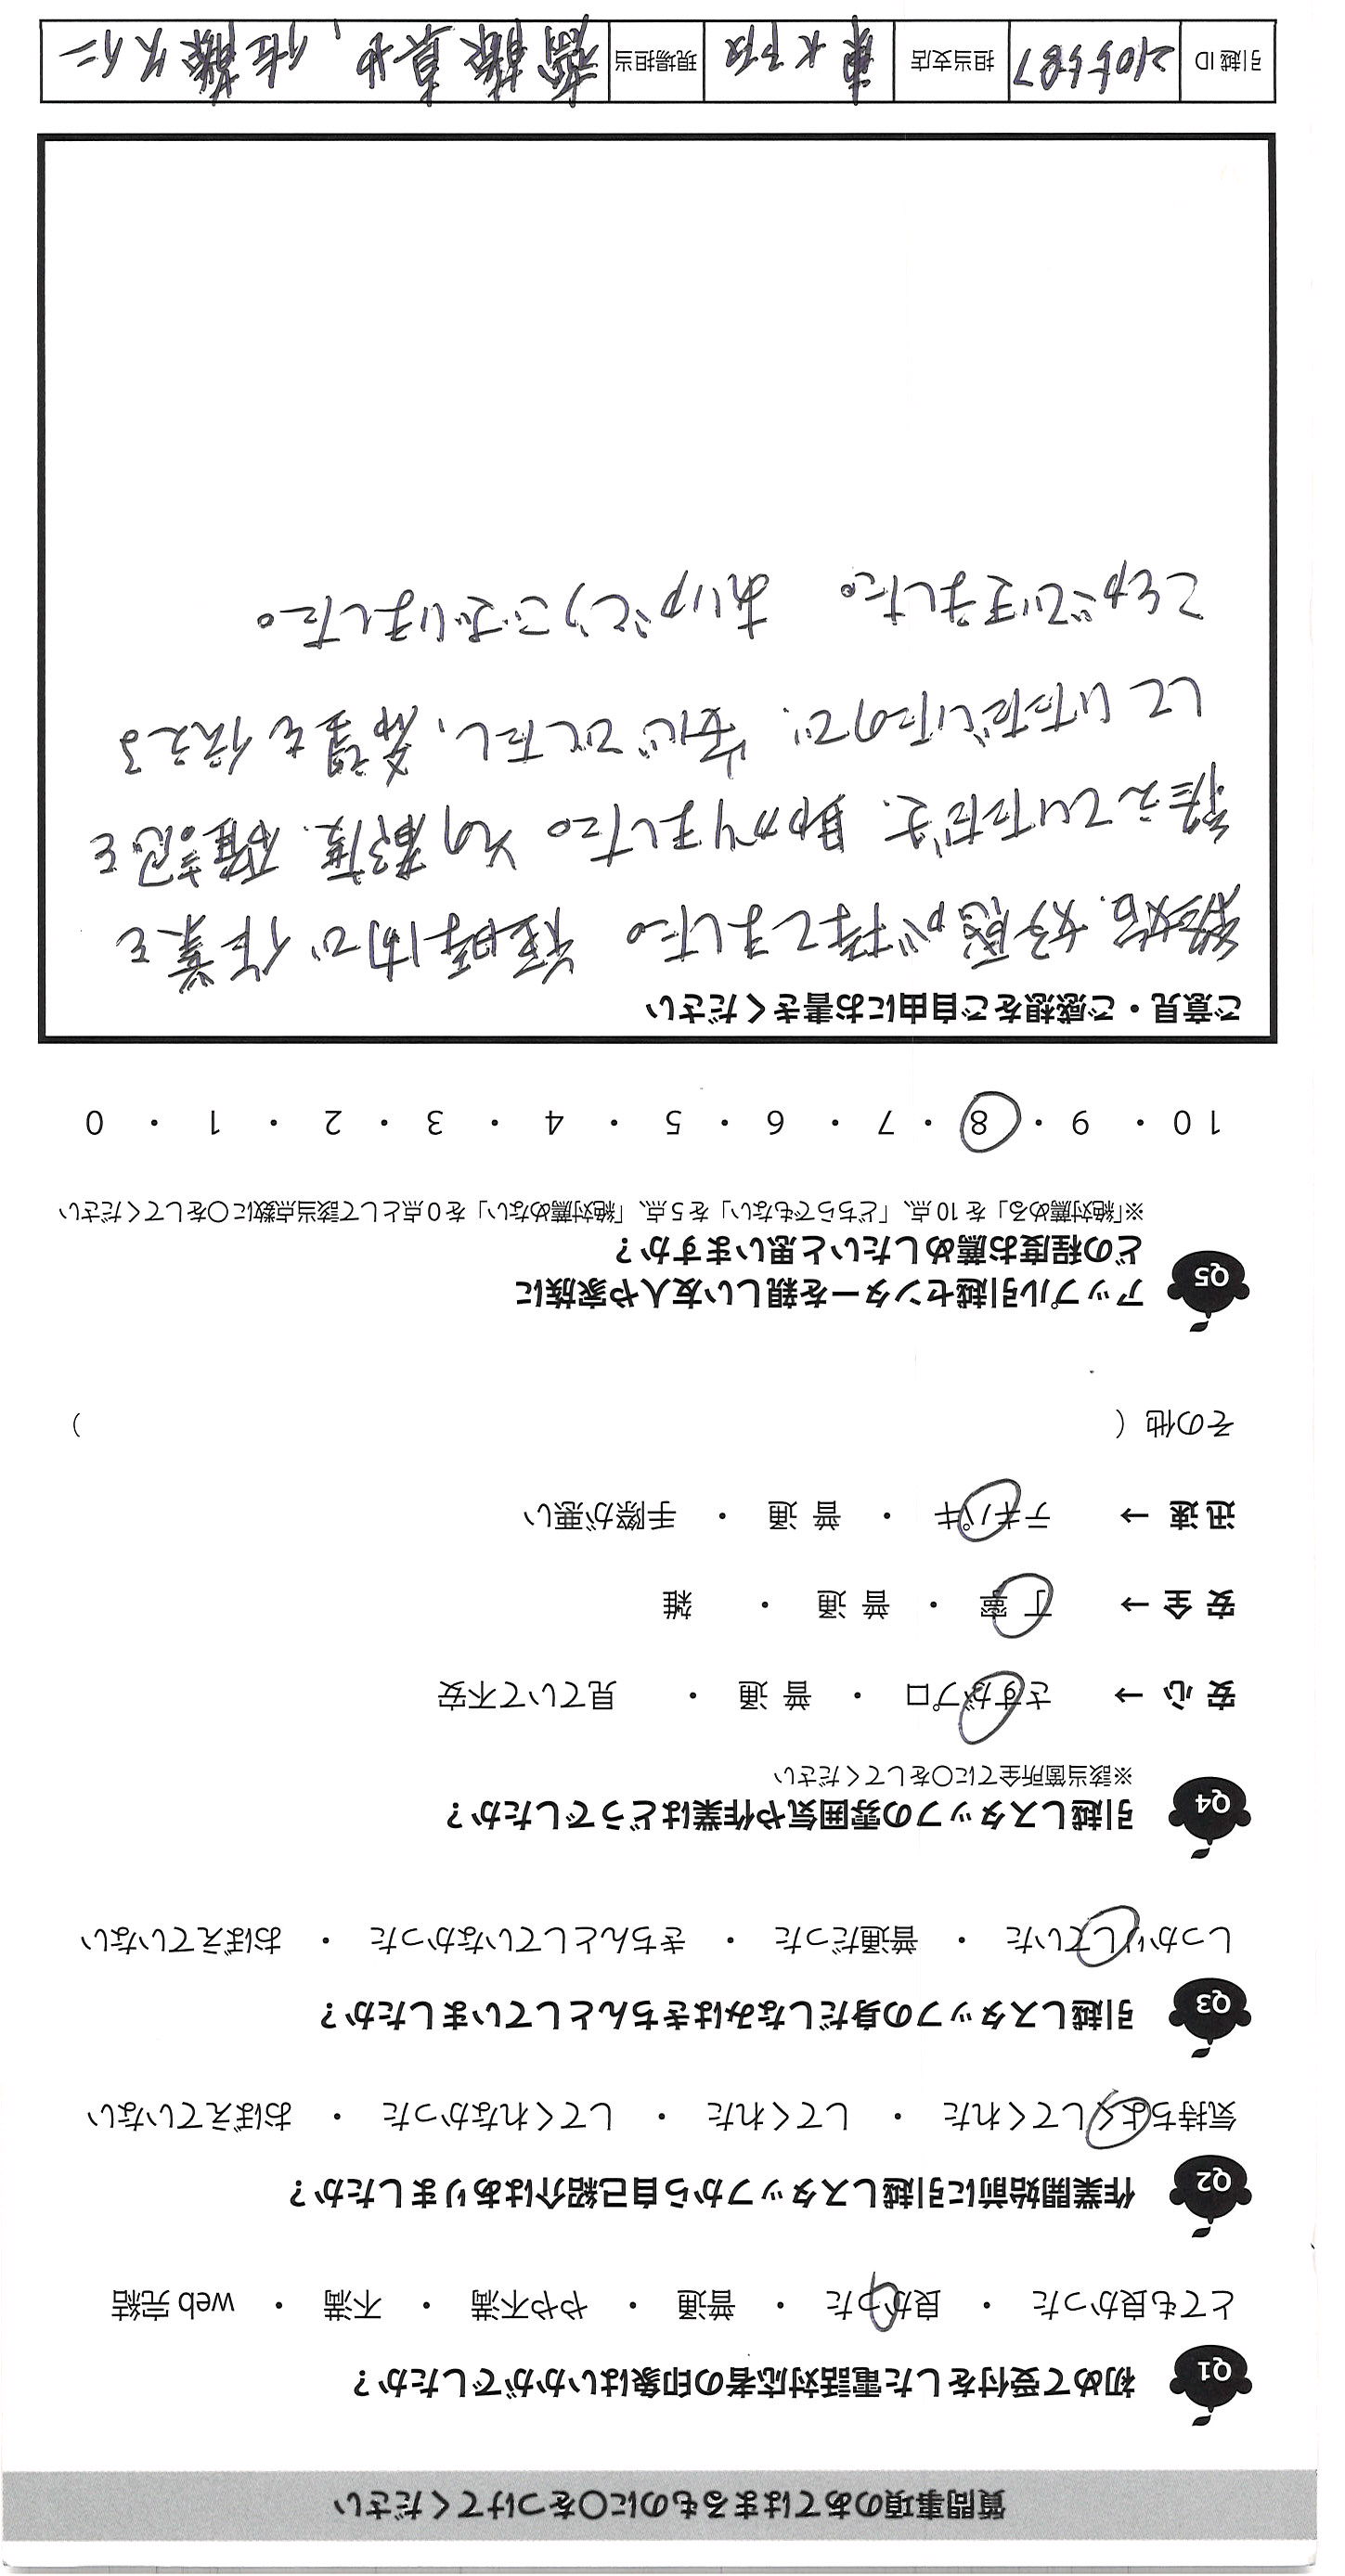 質問事項のあてはまるものに○をつけてください
Q1 初めて受付をした電話対応者の印象はいかがでしたか？
とても良かった ・ 良かった ・ 普通 ・ やや不満 ・ 不満 ・ web 完結
Q2 作業開始前に引越しスタッフから自己紹介はありましたか？
気持ちよくしてくれた ・ してくれた ・ してくれなかった ・ おぼえていない
Q3 引越しスタッフの身だしなみはきちんとしていましたか？
しっかりしていた ・ 普通だった ・ きちんとしていなかった ・ おぼえていない
Q4 引越しスタッフの雰囲気や作業はどうでしたか？
※該当箇所全てに○をしてください
安 心 → さすがプロ ・ 普 通 ・ 見ていて不安
安 全 → 丁 寧 ・ 普 通 ・ 雑
迅 速 → テキパキ ・ 普 通 ・ 手際が悪い
その他（ ）
Q5 アップル引越センターを親しい友人や家族に
どの程度お薦めしたいと思いますか？
※「絶対薦める」を 10 点、「どちらでもない」を 5 点、「絶対薦めない」を 0 点として該当点数に○をしてください
10 ・ 9 ・ 8 ・ 7 ・ 6 ・ 5 ・ 4 ・ 3 ・ 2 ・ 1 ・ 0
ご意見・ご感想をご自由にお書きください
終始、好感が持てました。短時間で作業を
終えていただき、助かりました。その都度、確認を
していただいたので、安心でしたし、希望も伝える
ことができました。 ありがとうございました。
引越 ID 2105587 担当支店 東大阪 現場担当 斎藤真也、佐藤久仁